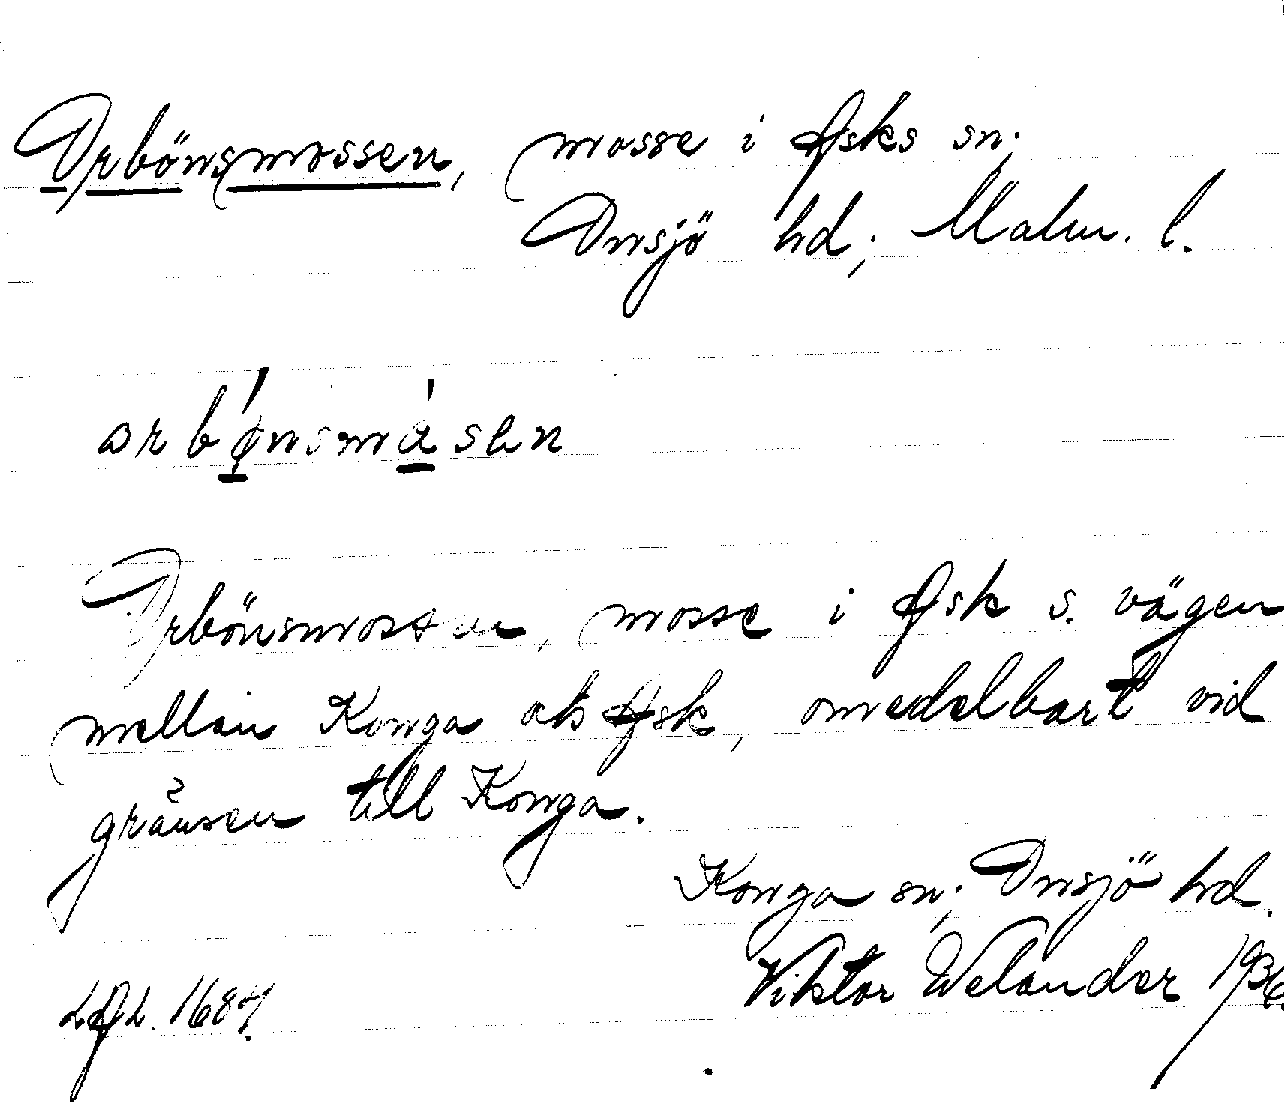 Orbönsmossen, mosse i Asks sn;
Onsjö hd; Malm. l.
orbǿnsmásen
Orbönsmossen, mosse i Ask s. vägen
mellan Konga ok Ask, omedelbart vid
gränsen till Konga.
Konga sn; Onsjö hd.
Viktor Welander 1936.
LAL.